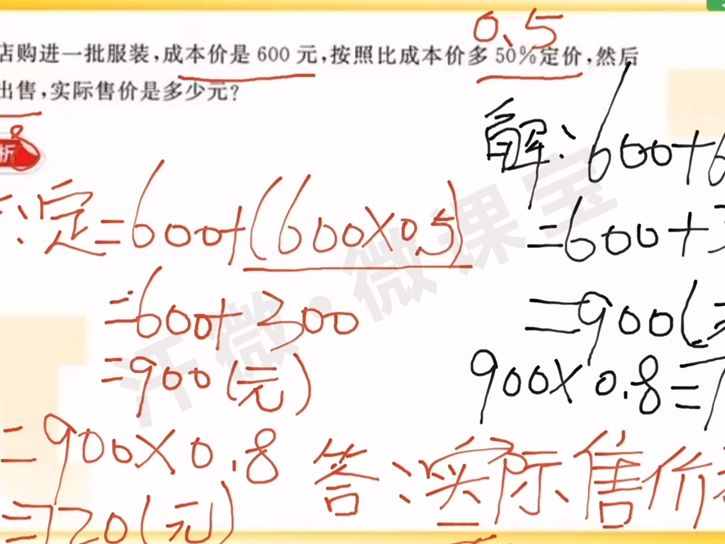 0.5
店购进一批服装,成本价是 600 元,按照比成本价多 50%定价,然后
出售,实际售价是多少元?
析
解:600+6
定=600+(600×0.5)
=600+3
=600+300
=900(
=900(元)
900×0.8=7
=900×0.8
答:实际售价
=720(元)
汗微·微课宝